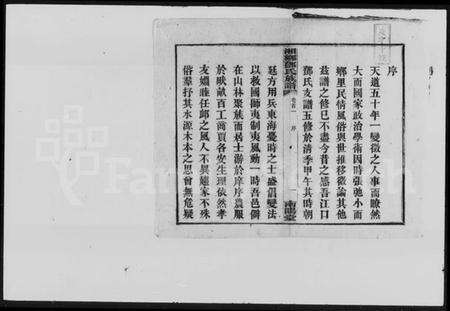 序
天道五十年一變徵之人事而瞭然
大而國家政治學術因時張弛小而
鄉里民情風俗與世推移微論其他
茲譜之修已不盡今昔之感吾江口
鄧氏支譜五修於清季甲午其時朝
湘鄉鄧氏族譜
卷首一 序
南陽堂
廷方用兵東海憂時之士盛倡變法
以救國師夷制夷風動一時吾邑僻
在山林聚族而居士游於庠序農服
於畎畝百工商賈各安生理依然孝
友婣睦任卹之風人不異鄉家不殊
俗羣抒其水源木本之思曾無危疑